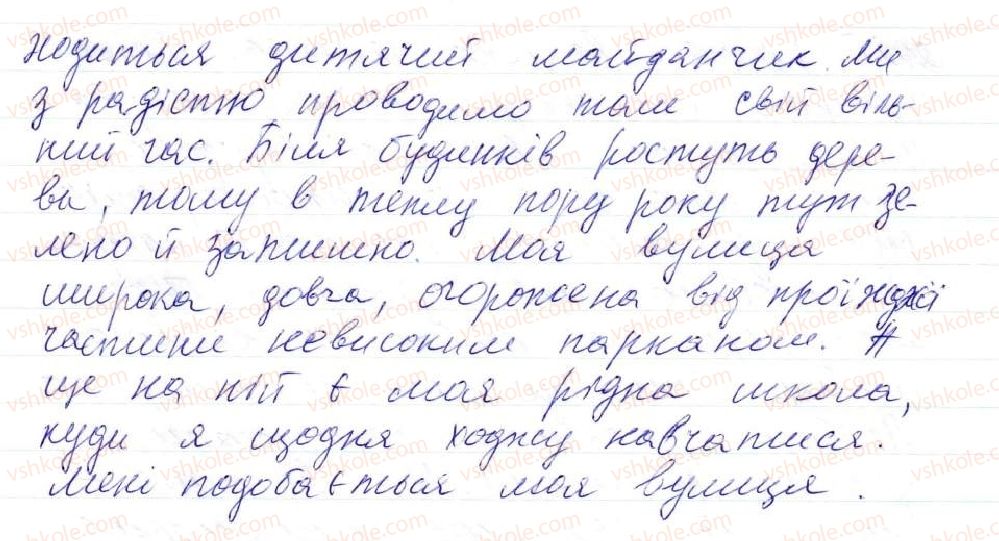 ходиться дитячий майданчик. Ми
з радістю проводимо там свій віль-
ний час. Біля будинків ростуть дере-
ва, тому в теплу пору року тут зе-
лено й затишно. Моя вулиця
широка, довга, огорожена від проїжджої
частини невисоким парканом. А
ще на ній є моя рідна школа,
куди я щодня ходжу навчатися.
Мені подобається моя вулиця.